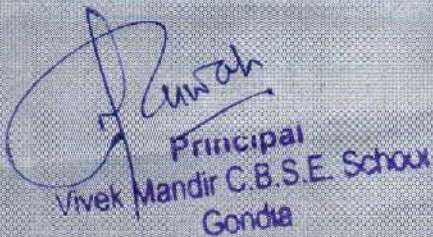 Principal
Vivek Mandir C.B.S.E. School
Gondia